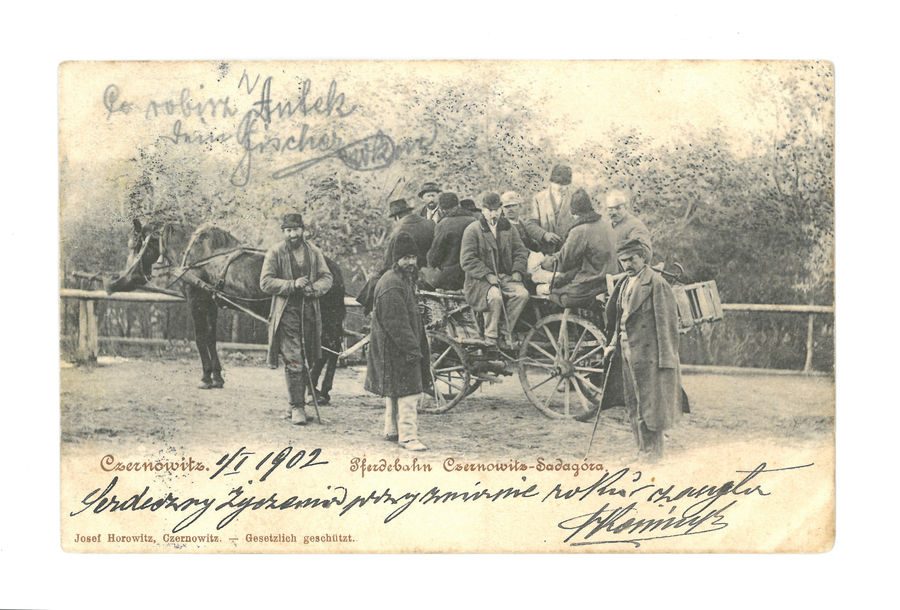 Co robisz Antek
Fischer
Czernowitz. 1/I 1902 Pferdebahn Czernowitz-Sadagóra.
Serdeczny Życzenia przy zmianie roku
Josef Horowitz, Czernowitz. — Gesetzlich geschützt.